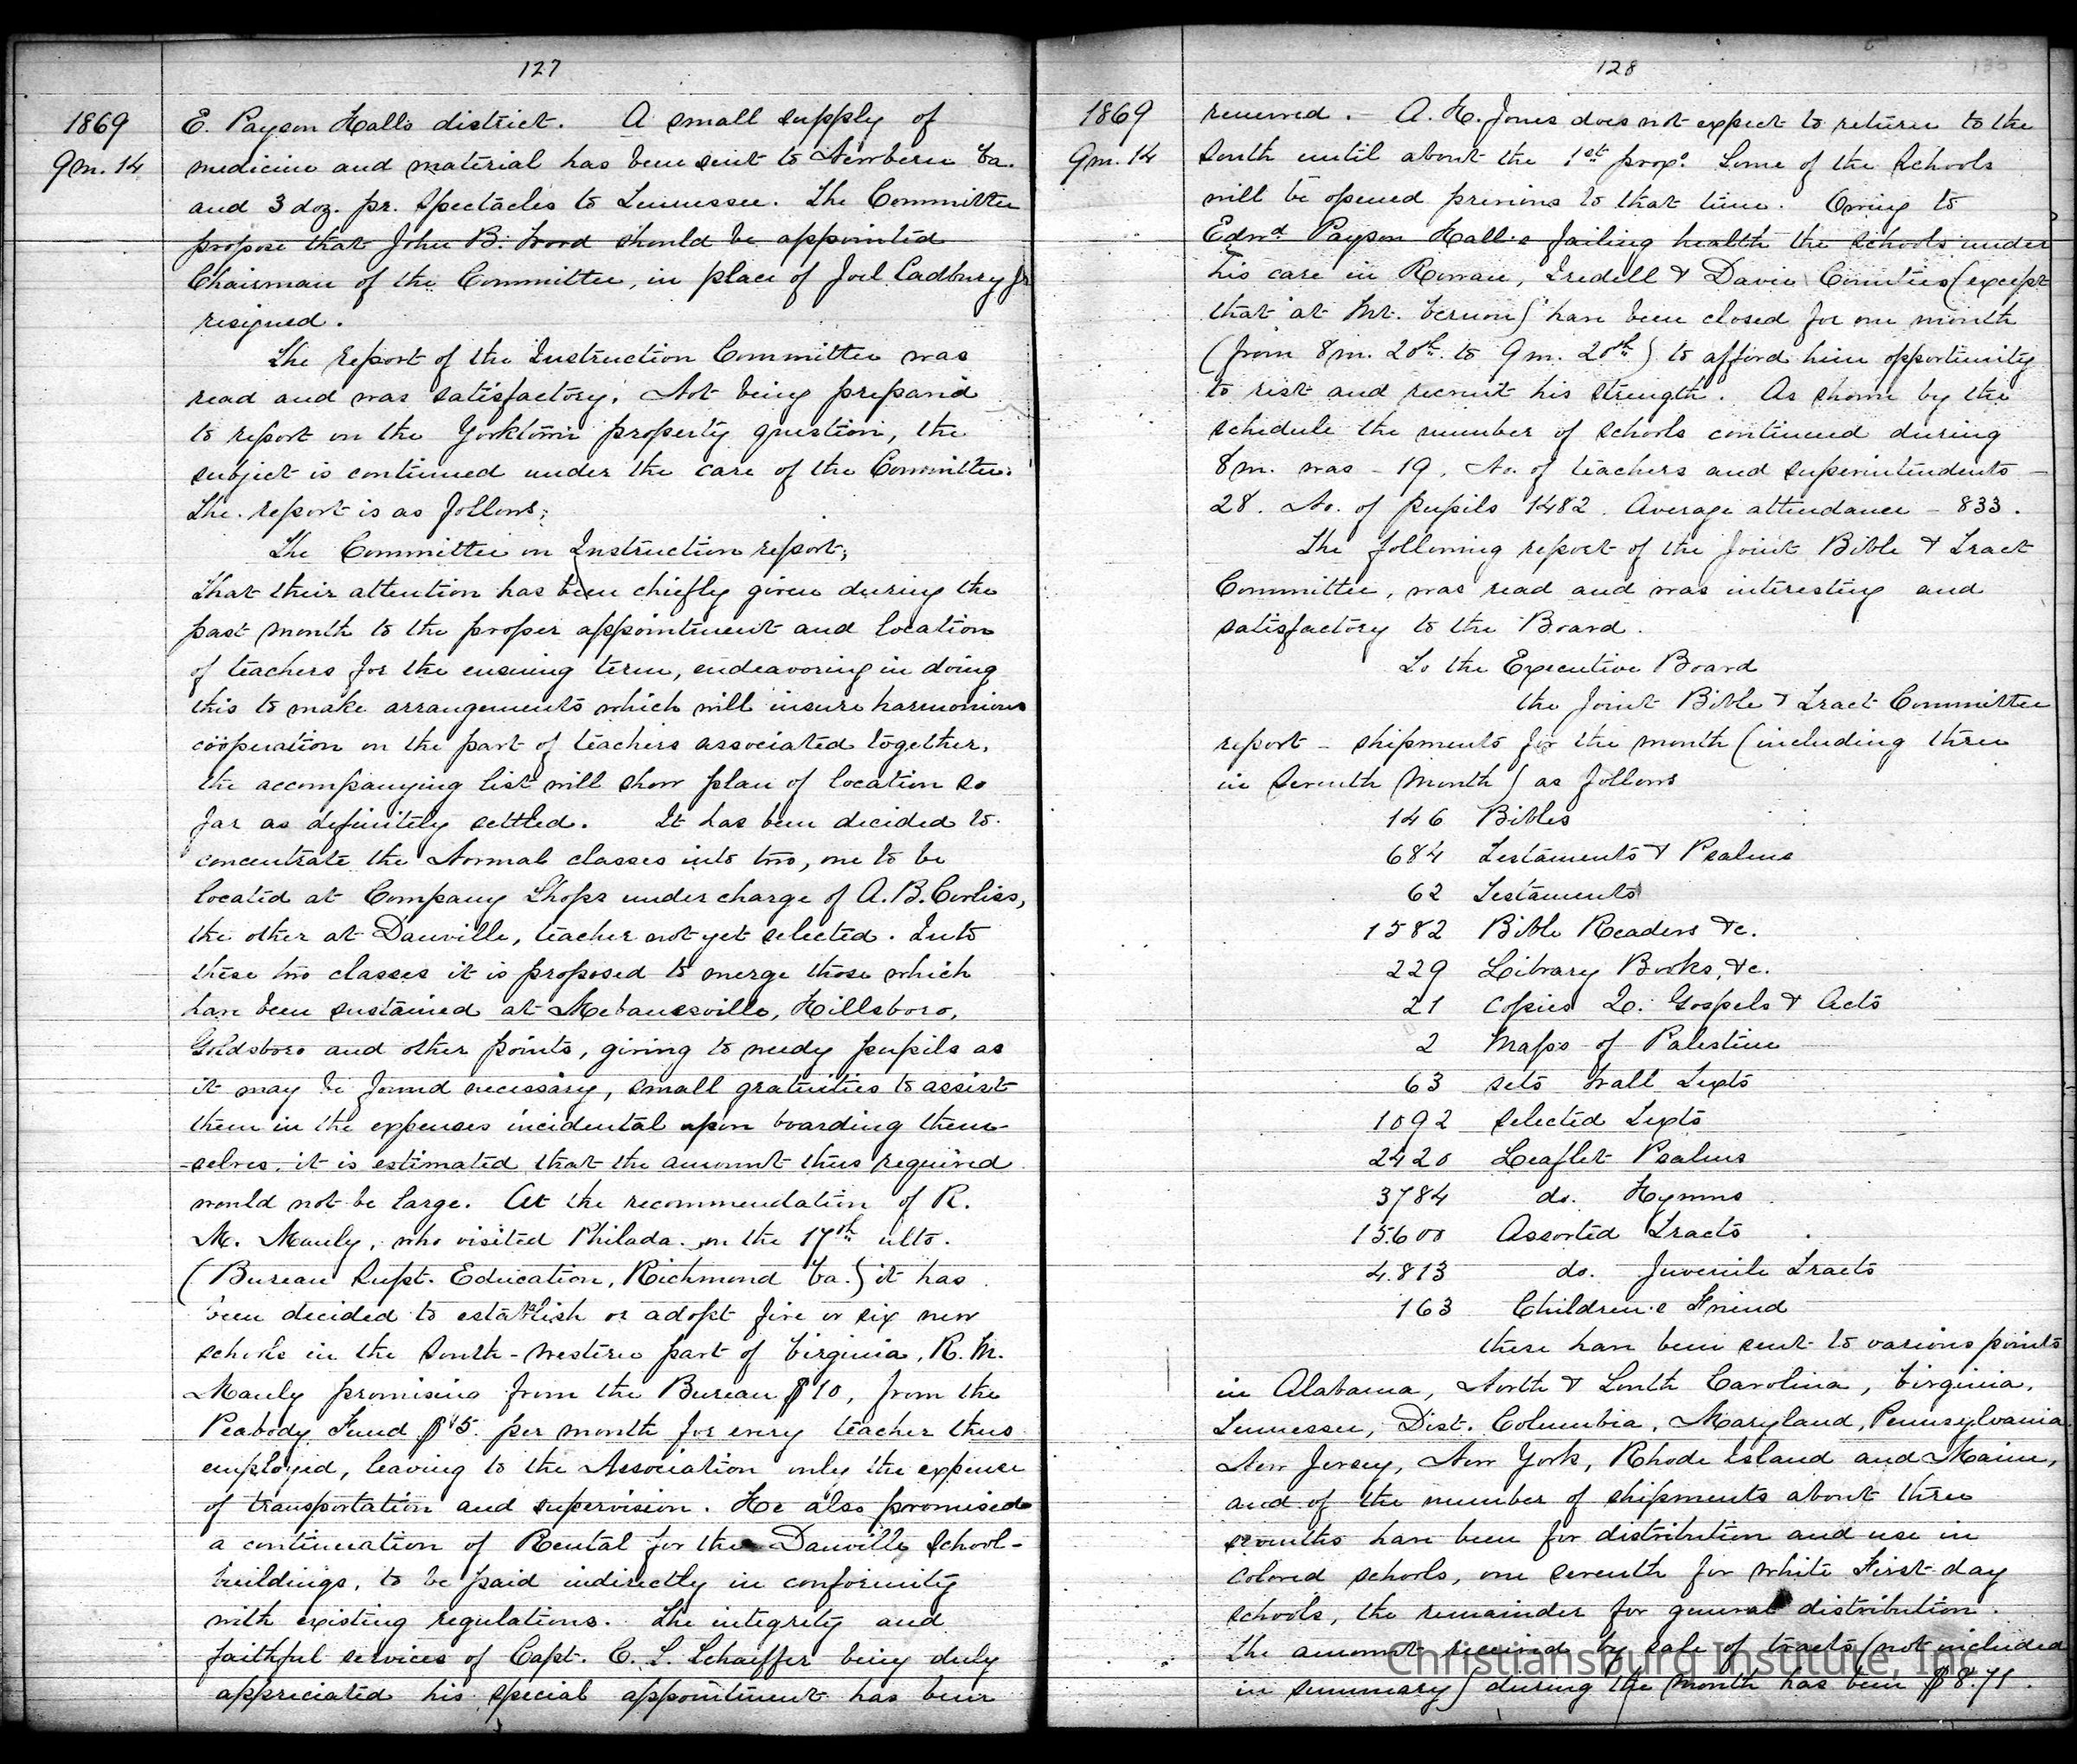 127
1869
9m. 14
E. Payson Halls district. A small supply of
medicine and material has been sent to Newbern Va.
and 3 doz. pr. Spectacles to Tennessee. The Committee
propose that John B. Wood should be appointed
Chairman of the Committee, in place of Joel Cadbury Jr
resigned.
The report of the Instruction Committee was
read and was satisfactory. Not being prepared
to report on the Yorktown property question, the
subject is continued under the care of the Committee.
The report is as follows;
The Committee on Instruction report;
That their attention has been chiefly given during the
past month to the proper appointment and location
of teachers for the ensuing term, endeavoring in doing
this to make arrangements which will insure harmonious
coöperation on the part of teachers associated together.
The accompanying list will show plan of location so
far as definitely settled. It has been decided to
concentrate the Normal classes into two, one to be
located at Company Shops under charge of A. B. Corliss,
the other at Danville, teacher not yet selected. Into
these two classes it is proposed to merge those which
have been sustained at Mebanesville, Hillsboro,
Goldsboro and other points, giving to needy pupils as
it may be found necessary, small gratuities to assist
them in the expenses incidental upon boarding them-
-selves, it is estimated that the amount thus required
would not be large. At the recommendation of R.
M. Manly, who visited Philada. on the 17th ulto.
(Bureau Supt. Education, Richmond Va.) it has
been decided to establish or adopt five or six new
schools in the South-western part of Virginia, R. M.
Manly promising from the Bureau $10, from the
Peabody Fund $5 per month for every teacher thus
employed, leaving to the Association only the expense
of transportation and supervision. He also promised
a continuation of Rental for the Danville School-
buildings, to be paid indirectly in conformity
with existing regulations. The integrity and
faithful services of Capt. C. S. Schaeffer being duly
appreciated his special appointment has been
128
1869
9m. 14
renewed. - A. H. Jones does not expect to return to the
South until about the 1st proxo. Some of the Schools
will be opened previous to that time. Owing to
Edwd Payson Hall's failing health the schools under
his care in Rowan, Iredell & Davie Counties (except
that at Mt. Vernon) have been closed for one month
(from 8m. 20th. to 9m. 20th.) to afford him opportunity
to rest and recruit his strength. As shown by the
schedule the number of schools continued during
8m. was - 19. No. of teachers and superintendents -
28. No. of pupils 1482. Average attendance - 833.
The following report of the Joint Bible & Tract
Committee, was read and was interesting and
satisfactory to the Board.
To the Executive Board
the Joint Bible & Tract Committee
report - shipments for the month (including three
in Seventh Month) as follows
146 Bibles
684 Testaments & Psalms
62 Testaments
1582 Bible Readers &c.
229 Library Books, &c.
21 copies Gospels & Acts
2 Maps of Palestine
63 sets Wall Texts
1092 selected Texts
2420 Leaflet Psalms
3784 do. Hymns
15600 Assorted Tracts
4.813 do. Juvenile Tracts
163 Children's Friend
these have been sent to various points
in Alabama, North & South Carolina, Virginia,
Tennessee, Dist. Columbia, Maryland, Pennsylvania
New Jersey, New York, Rhode Island and Maine,
and of the number of shipments about three
sevenths have been for distribution and use in
colored schools, one seventh for white First-day
schools, the remainder for general distribution.
The amount received by sale of tracts (not included
in summary) during the month has been $8.71.
Christiansburg Institute, Inc